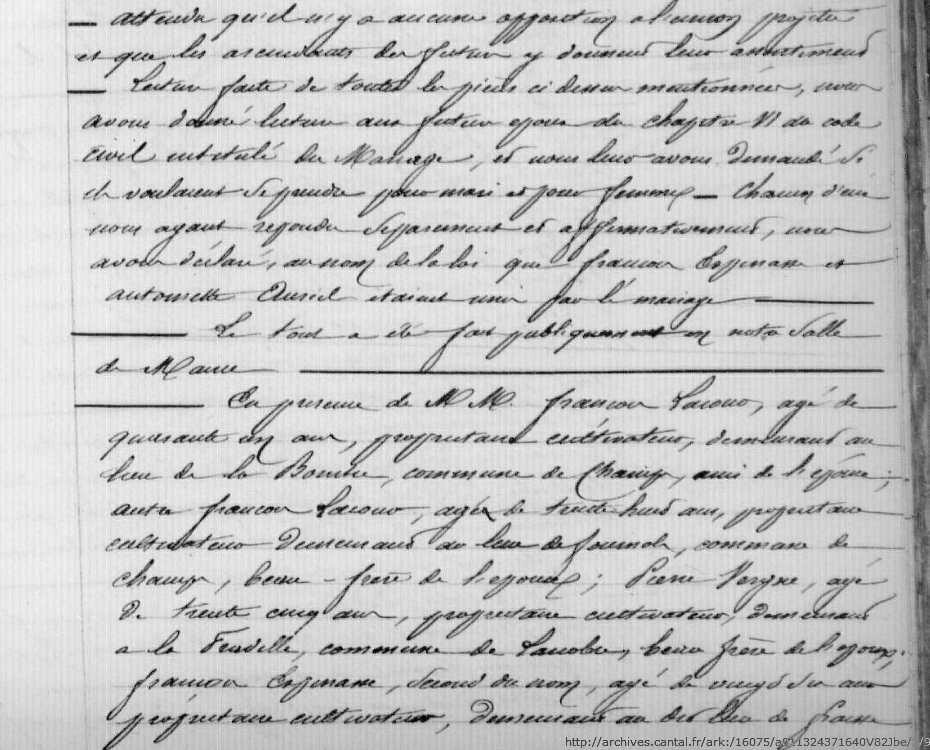 — attendu qu'il n'y a aucune opposition a l'union projetée
et que les ascendants du futur y donnent leur assentiment
— Lecture faite de toutes les pièces ci dessus mentionnées, nous
avons donné lecture aux futurs epoux du chapitre VI du code
civil intitulé du Mariage, et nous leur avons demandé si
ils voulaient se prendre pour mari et pour femme — Chacun d'eux
nous ayant repondu separement et affirmativement, nous
avons déclaré, au nom de la loi que françois Espinasse et
antoinette Auriel etaient unis par le mariage —
— Le tout a été fait publiquement en notre salle
de Mairie —
— En presence de M M. françois Lacoux, agé de
quarante ans, propriétaire cultivateur, demeurant au
lieu de la, commune de Champs, ami de l'épouse;
autre françois Lacoux, agé de trente huit ans, propriétaire
cultivateur demeurant au lieu de fournols, commune de
champs, beau-frère de l'epoux; Pierre Vergne, agé
de trente cinq ans, propriétaire cultivateur, demeurant
a la Pradelle, commune de Lanobre, beau frère de l'epoux;
françois Espinasse, second du nom, agé de vingt six ans
propriétaire cultivateur, demeurant au dit lieu de
http://archives.cantal.fr/ark:/16075/a011324371640V82Jbe/